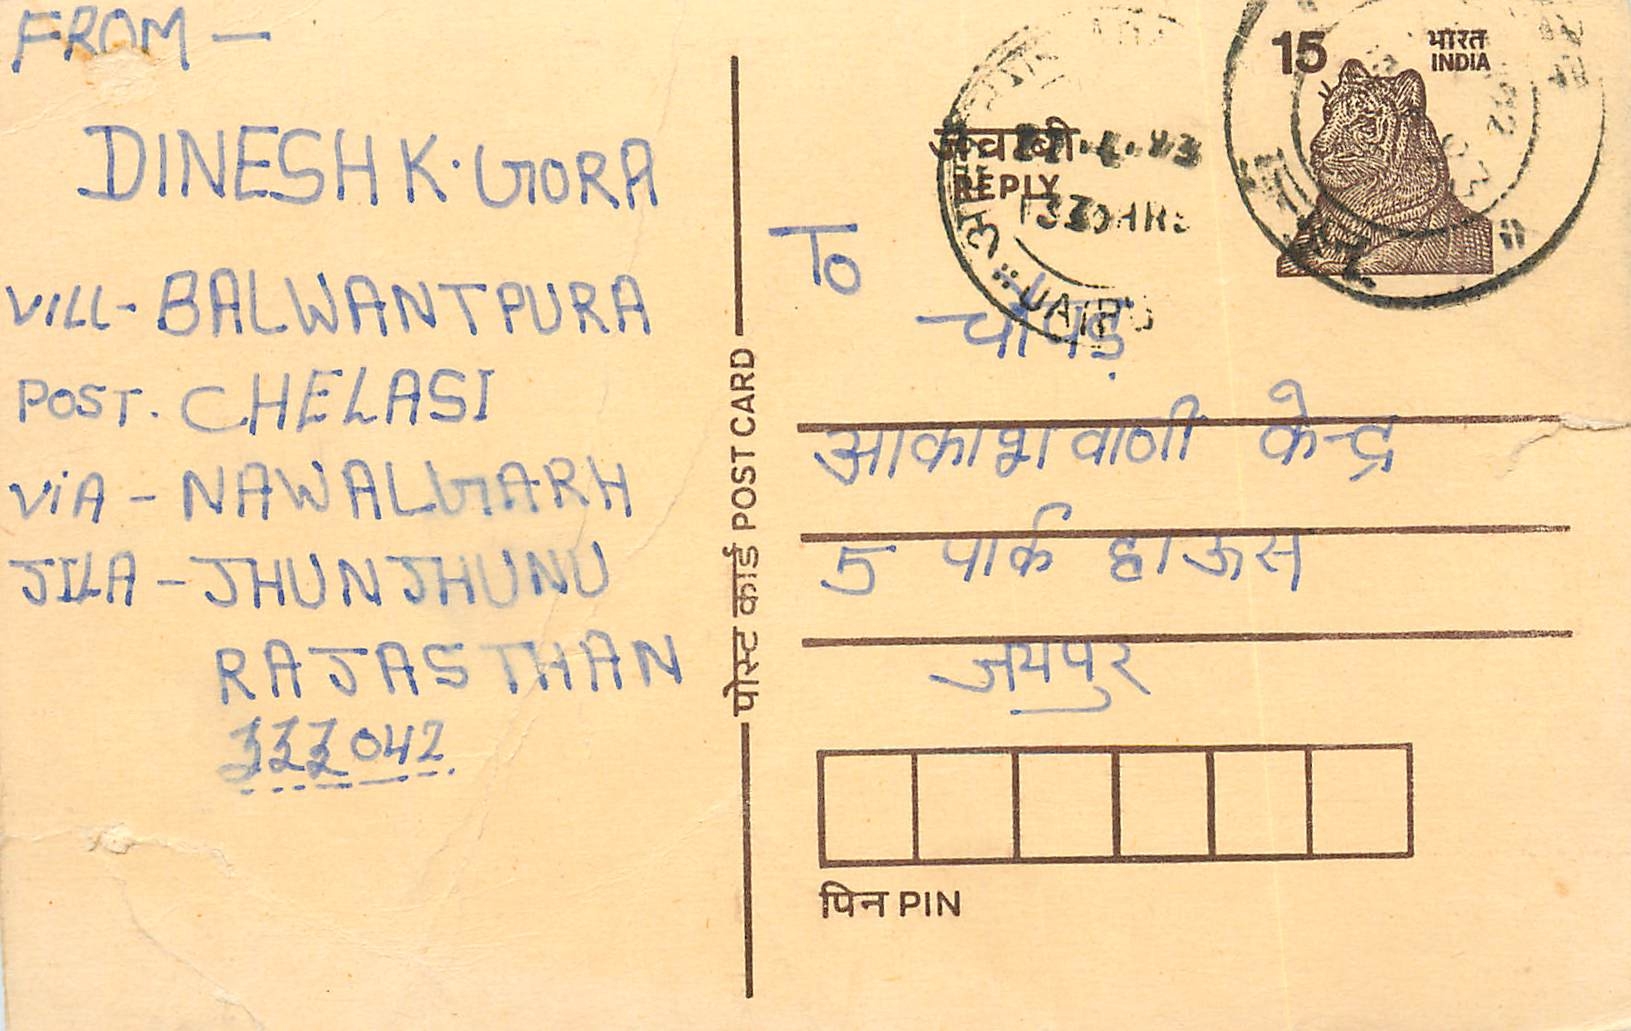 FROM —
DINESH K. GORA
VILL- BALWANTPURA
POST. CHELASI
VIA - NAWALGARH
JILA - JHUNJHUNU
RAJASTHAN
333042
पोस्ट कार्ड POST CARD
15 भारत
INDIA
जवाबी
REPLY
1330HRS
To
आकाशवाणी केन्द्र
5 पार्क हाऊस
जयपुर
पिन PIN